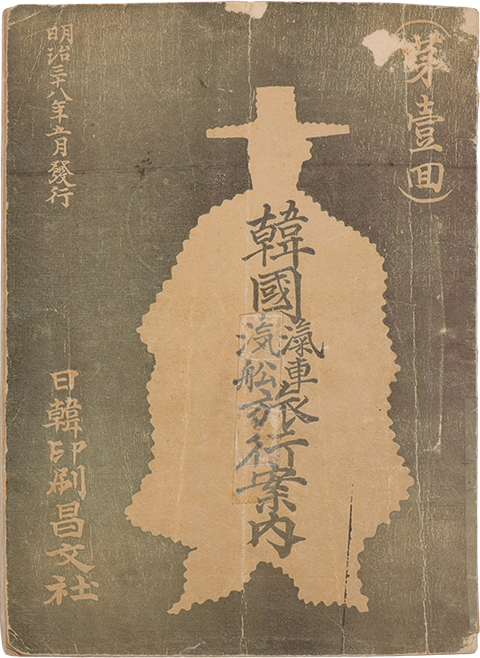 (第壹回)
韓國汽車汽舩旅行案內
明治三十八年五月發行
日韓印刷昌文社